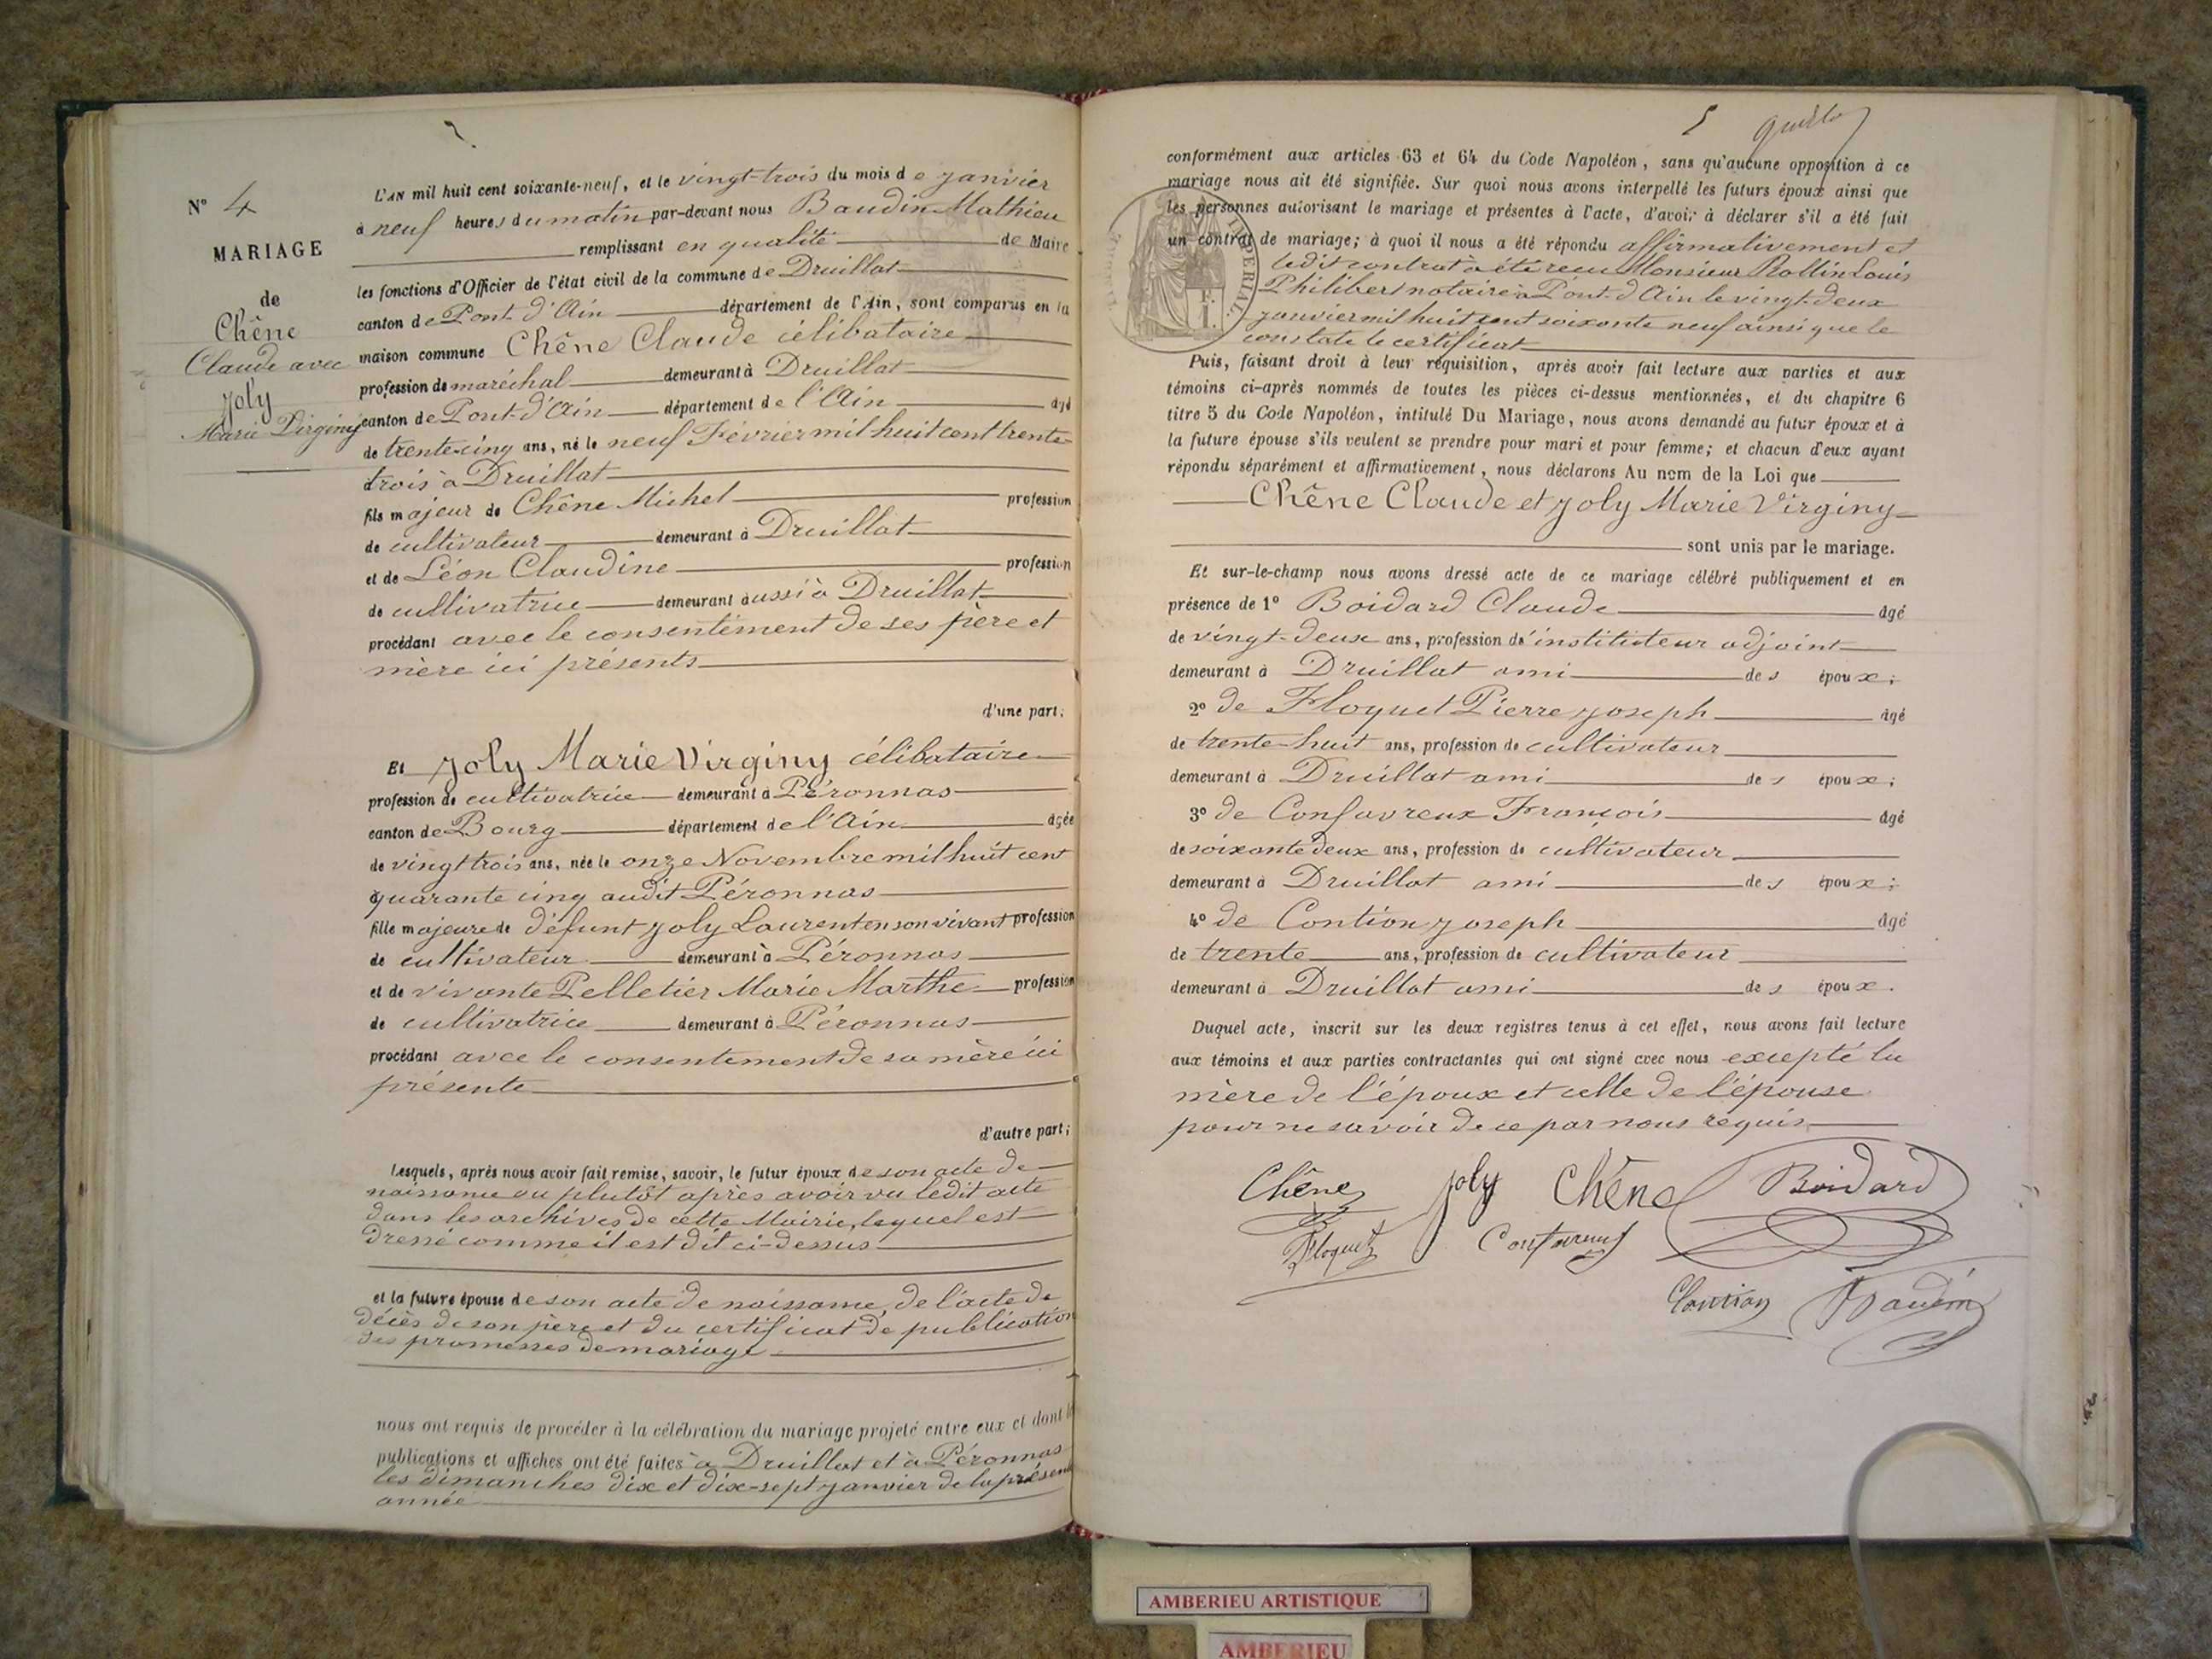 N° 4
MARIAGE
de
Chêne
Claude avec
Joly
Marie Virginy
L'AN mil huit cent soixante-neuf, et le vingt-trois du mois de janvier
à neuf heures du matin par-devant nous Baudin Mathieu
remplissant en qualité de Maire
les fonctions d'Officier de l'état civil de la commune de Druillat
canton de Pont-d'Ain département de l'Ain, sont comparus en la
maison commune Chêne Claude célibataire
profession de maréchal demeurant à Druillat
canton de Pont-d'Ain département de l'Ain âgé
de trente-cinq ans, né le neuf Février mil huit cent trente-
trois à Druillat
fils majeur de Chêne Michel profession
de cultivateur demeurant à Druillat
et de Léon Claudine profession
de cultivatrice demeurant aussi à Druillat
procédant avec le consentement de ses père et
mère ici présents
d'une part;
Et Joly Marie Virginy célibataire
profession de cultivatrice demeurant à Péronnas
canton de Bourg département de l'Ain âgée
de vingt trois ans, née le onze Novembre mil huit cent
quarante cinq audit Péronnas
fille majeure de défunt Joly Laurent en son vivant profession
de cultivateur demeurant à Péronnas
et de vivante Pelletier Marie Marthe profession
de cultivatrice demeurant à Péronnas
procédant avec le consentement de sa mère ici
présente
d'autre part;
Lesquels, après nous avoir fait remise, savoir, le futur époux de son acte de
naissance ou plutôt après avoir vu ledit acte
dans les archives de cette Mairie, lequel est
dressé comme il est dit ci-dessus
et la future épouse de son acte de naissance, de l'acte de
décès de son père et du certificat de publication
des promesses de mariage
nous ont requis de procéder à la célébration du mariage projeté entre eux et dont
publications et affiches ont été faites à Druillat et à Péronnas
les dimanches dix et dix-sept janvier de la présente
année
5
conformément aux articles 63 et 64 du Code Napoléon, sans qu'aucune opposition à ce
mariage nous ait été signifiée. Sur quoi nous avons interpellé les futurs époux ainsi que
les personnes autorisant le mariage et présentes à l'acte, d'avoir à déclarer s'il a été fait
un contrat de mariage; à quoi il nous a été répondu affirmativement et
ledit contrat a été reçu Monsieur Rollin Louis
Philibert notaire à Pont-d'Ain le vingt-deux
janvier mil huit cent soixante neuf ainsi que le
constate le certificat
IMPERIAL
Puis, faisant droit à leur réquisition, après avoir fait lecture aux parties et aux
témoins ci-après nommés de toutes les pièces ci-dessus mentionnées, et du chapitre 6
titre 5 du Code Napoléon, intitulé Du Mariage, nous avons demandé au futur époux et à
la future épouse s'ils veulent se prendre pour mari et pour femme; et chacun d'eux ayant
répondu séparément et affirmativement, nous déclarons Au nom de la Loi que
Chêne Claude et Joly Marie Virginy
sont unis par le mariage.
Et sur-le-champ nous avons dressé acte de ce mariage célébré publiquement et en
présence de 1° Boidard Claude âgé
de vingt-deux ans, profession d'instituteur adjoint
demeurant à Druillat ami des époux;
2° de Floquet Pierre Joseph âgé
de trente-huit ans, profession de cultivateur
demeurant à Druillat ami des époux;
3° de Confavreux François âgé
de soixante deux ans, profession de cultivateur
demeurant à Druillat ami des époux;
4° de Contion Joseph âgé
de trente ans, profession de cultivateur
demeurant à Druillat ami des époux.
Duquel acte, inscrit sur les deux registres tenus à cet effet, nous avons fait lecture
aux témoins et aux parties contractantes qui ont signé avec nous excepté la
mère de l'époux et celle de l'épouse
pour ne savoir de ce par nous requis
Chêne Joly Chêne Boidard
Floquet Confavreux
Contion Baudin
AMBERIEU ARTISTIQUE
AMBERIEU